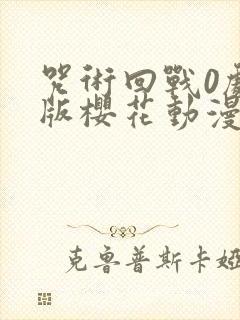 咒術回戰0劇
版櫻花動漫
克魯普斯卡婭